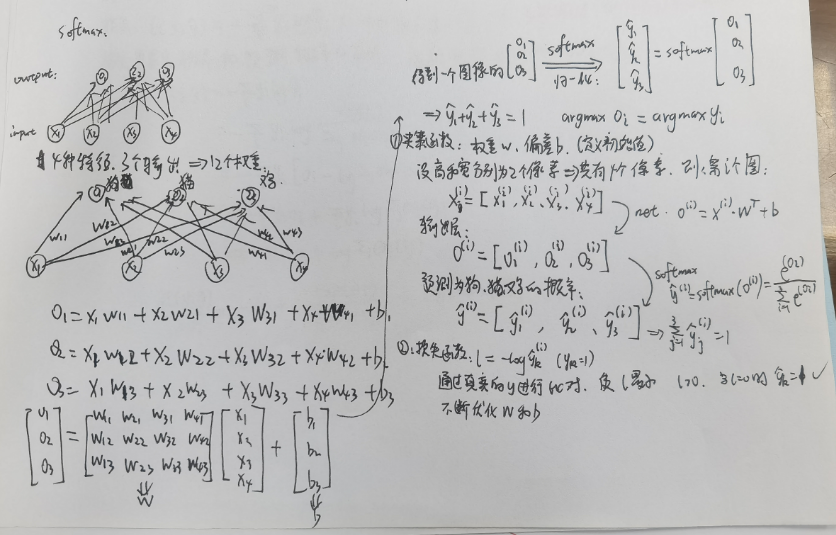 softmax:
output: O1 O2 O3
input X1 X2 X3 X4
4种特征, 3个输出 ⇒ 12个权重:
狗 猫 鸡
O1 O2 O3
w11 w22 w23 w42 w43 w41
X1 X2 X3 X4
O1 = X1 W11 + X2 W21 + X3 W31 + X4 W41 + b1
O2 = X1 W12 + X2 W22 + X3 W32 + X4 W42 + b
O3 = X1 W13 + X2 W23 + X3 W33 + X4 W43 + b3
[O1 O2 O3] = [W11 W21 W31 W41
W12 W22 W32 W42
W13 W23 W33 W43] [X1 X2 X3 X4] + [b1 b2 b3]
⇓ W ⇓ b
得到一个图像的 [O1 O2 O3] softmax 归一化: [ŷ1 ŷ2 ŷ3] = softmax [O1 O2 O3]
⇒ ŷ1 + ŷ2 + ŷ3 = 1 argmax Oi = argmax yi
① 函数: 权重 w, 偏差 b. (定义初始值)
设高和宽分别为2个像素 ⇒ 共有4个像素. 则第i个图:
X(i) = [X1(i), X2(i), X3(i), X4(i)]
net. O(i) = X(i)·WT + b
输出层:
O(i) = [O1(i), O2(i), O3(i)]
预测为狗, 猫, 鸡的概率:
softmax
ŷ(i) = softmax(O(i)) = e(Oi) / Σ e(Oi)
ŷ(i) = [ŷ1(i), ŷ2(i), ŷ3(i)] ⇒ Σ ŷj(i) = 1
②: 损失函数: l = -log ŷk(i) (yk=1)
通过真实的y进行比对, 使l最小 l>0. 当l=0时 ŷk=1 ✓
不断优化 W 和 b